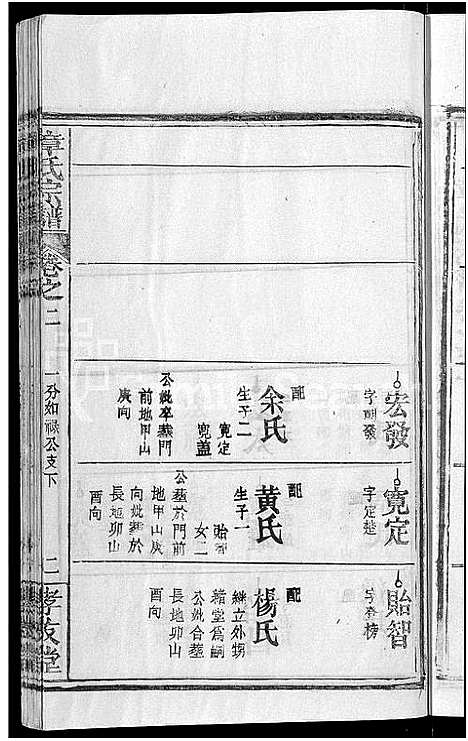 宏發
字朝發
配
余氏
生子二
寬定
寬蓋
公妣卒葬門
前地甲山
庚向
寬定
字定楚
配
黃氏
生子一
貽智
女二
公葬於門前
地甲山庚
向妣葬於
長地卯山
酉向
貽智
字
榜
配
楊氏
繼立外甥
緒堂爲嗣
公妣合墓
長地卯山
酉向
章氏宗譜
卷之二
一分如祿公支下
二
孝友堂